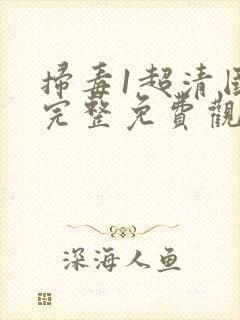 掃毒1超清
完整免費觀
深海人鱼